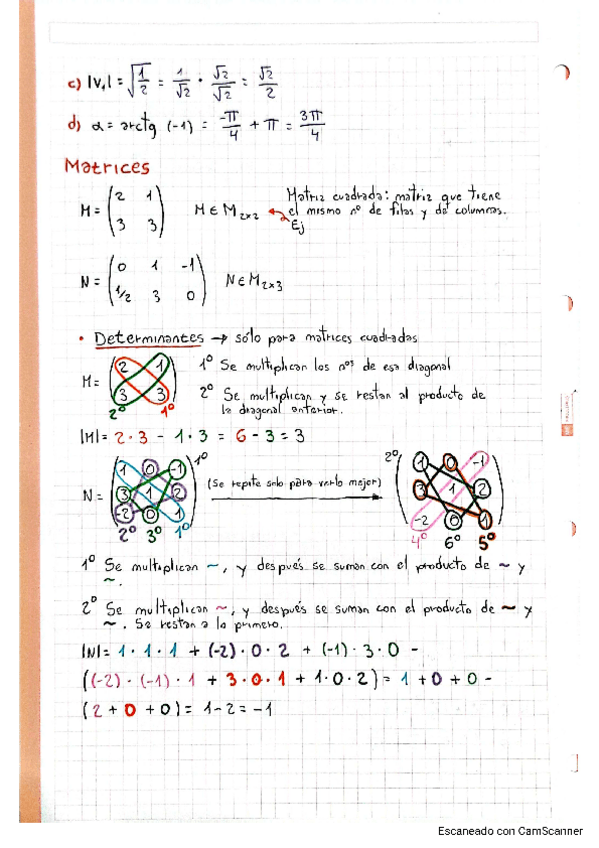 c) |v₁| = √(1/2) = 1/√2 · √2/√2 = √2/2
d) α = arctg (-1) = -π/4 + π = 3π/4
Matrices
M = (2 1
3 3) M ∈ M₂ₓ₂ Matriz cuadrada: matriz que tiene
el mismo nº de filas y de columnas.
Ej
N = (0 1 -1
1/2 3 0) N ∈ M₂ₓ₃
• Determinantes → sólo para matrices cuadradas
M = (2 1
3 3) 1º Se multiplican los nºs de esa diagonal
2º Se multiplican y se restan al producto de
la diagonal anterior.
2º 1º
|M| = 2·3 - 1·3 = 6 - 3 = 3
N = (1 0 -1
3 1 2
-2 0 1) 1º
2º 3º 1º
(Se repite solo para verlo mejor)
2º (1 0 -1
3 1 2
-2 0 1)
4º 6º 5º
1º Se multiplican ~, y después se suman con el producto de ~ y
~.
2º Se multiplican ~, y después se suman con el producto de ~ y
~. Se restan a lo primero.
|N| = 1·1·1 + (-2)·0·2 + (-1)·3·0 -
((-2)·(-1)·1 + 3·0·1 + 1·0·2) = 1 + 0 + 0 -
(2 + 0 + 0) = 1 - 2 = -1
Escaneado con CamScanner